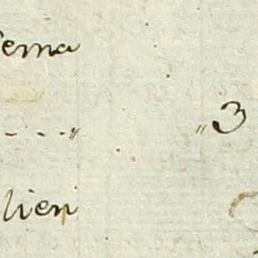 tema
....〃 〃 3
lien